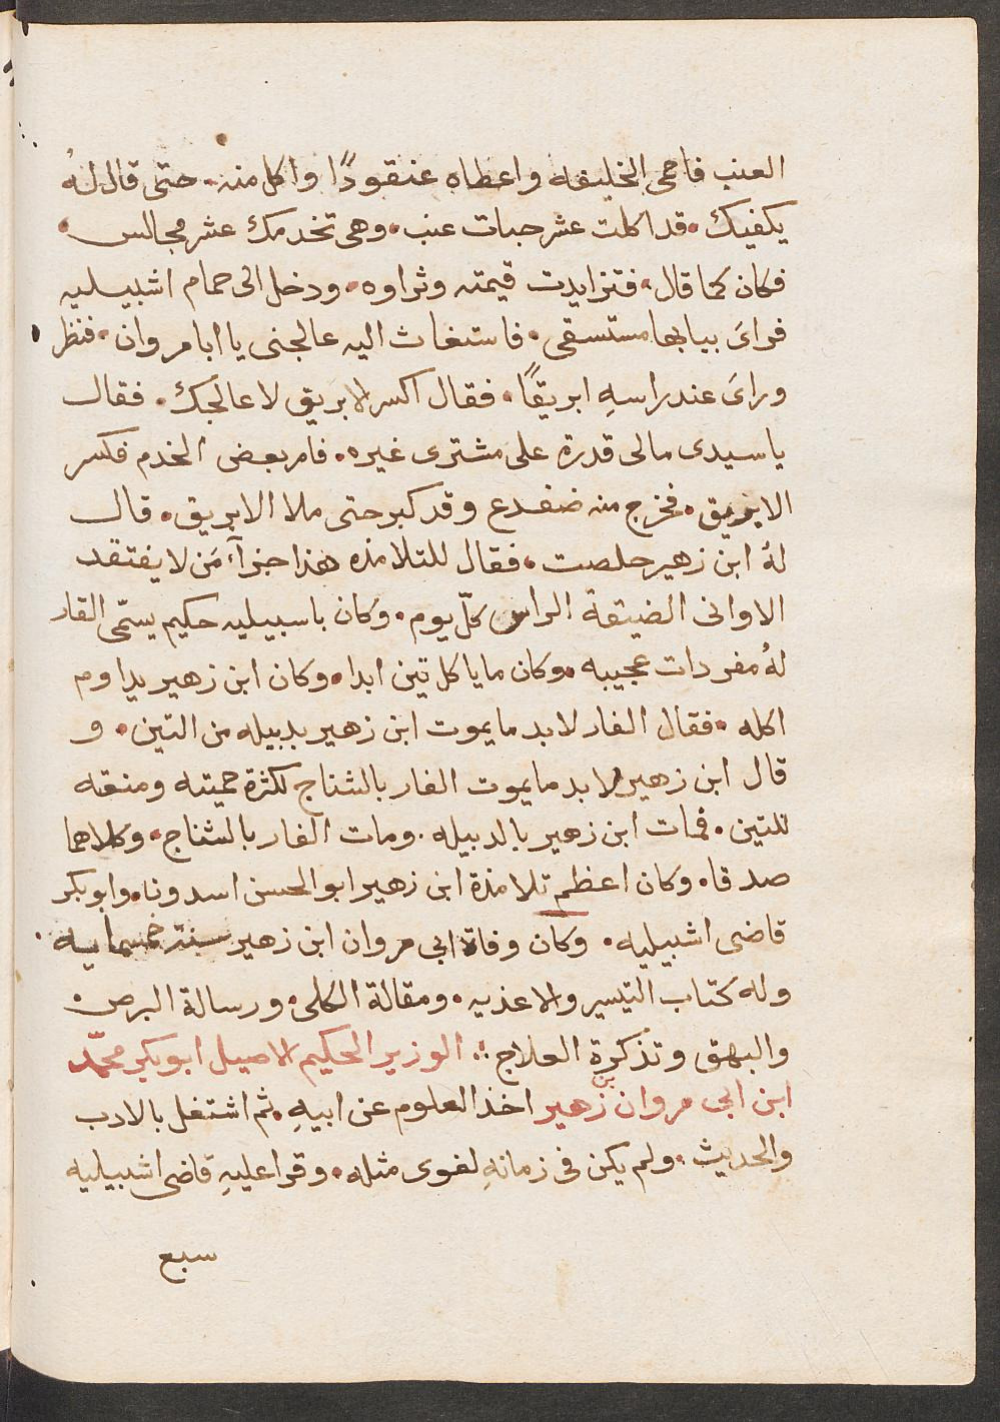 العنب فاحمى الخليفه واعطاه عنقودًا واكل منه. حتى قال لهُ
يكفيك. قد اكلت عشر حبات عنب. وهى تخدمك عشر مجالس.
فكان كما قال. فتزايدت قيمته وثراوه. ودخل الى حمام اشبيليه
فراىَ ببابها مستسقى. فاستغاث اليه عالجنى يا ابا مروان. فنظر
وراىَ عند راسهِ ابريقًا. فقال اكسر الابريق لاعالجك. فقال
يا سيدى مالى قدرة على مشترى غيره. فامر بعض الخدم فكسر
الابريق. فخرج منه ضفدع وقد كبر حتى ملا الابريق. قال
لهُ ابن زهير خلصت. فقال للتلامذه هذا جزآء مَن لا يفتقد
الاوانى الضيقة الراس كلّ يوم. وكان باسبيليه حكيم يسمّى الفار
لهُ مفردات عجيبه. وكان ما ياكل تين ابدا. وكان ابن زهير يداوم
اكله. فقال الفار لا بد ما يموت ابن زهير بدبيله من التين. و
قال ابن زهير لا بد ما يموت الفار بالشناج لكثرة حميته ومنعه
للتين. فمات ابن زهير بالدبيله. ومات الفار بالشناج. وكلاهما
صدقا. وكان اعظم تلامذة ابن زهير ابو الحسن اسدونا. وابو بكر
قاضى اشبيليه. وكان وفاة ابى مروان ابن زهير سنة خمسمايه.
وله كتاب التيسير والاغذيه. ومقالة الكلى. ورسالة البرص.
والبهق وتذكرة العلاج∴ الوزير الحكيم الاصيل ابو بكر محمّد
ابن ابى مروان بن زهير اخذ العلوم عن ابيهِ. ثم اشتغل بالادب
والحديث. ولم يكن فى زمانهِ لغوى مثله. وقرا عليهِ قاضى اشبيليه
سبع